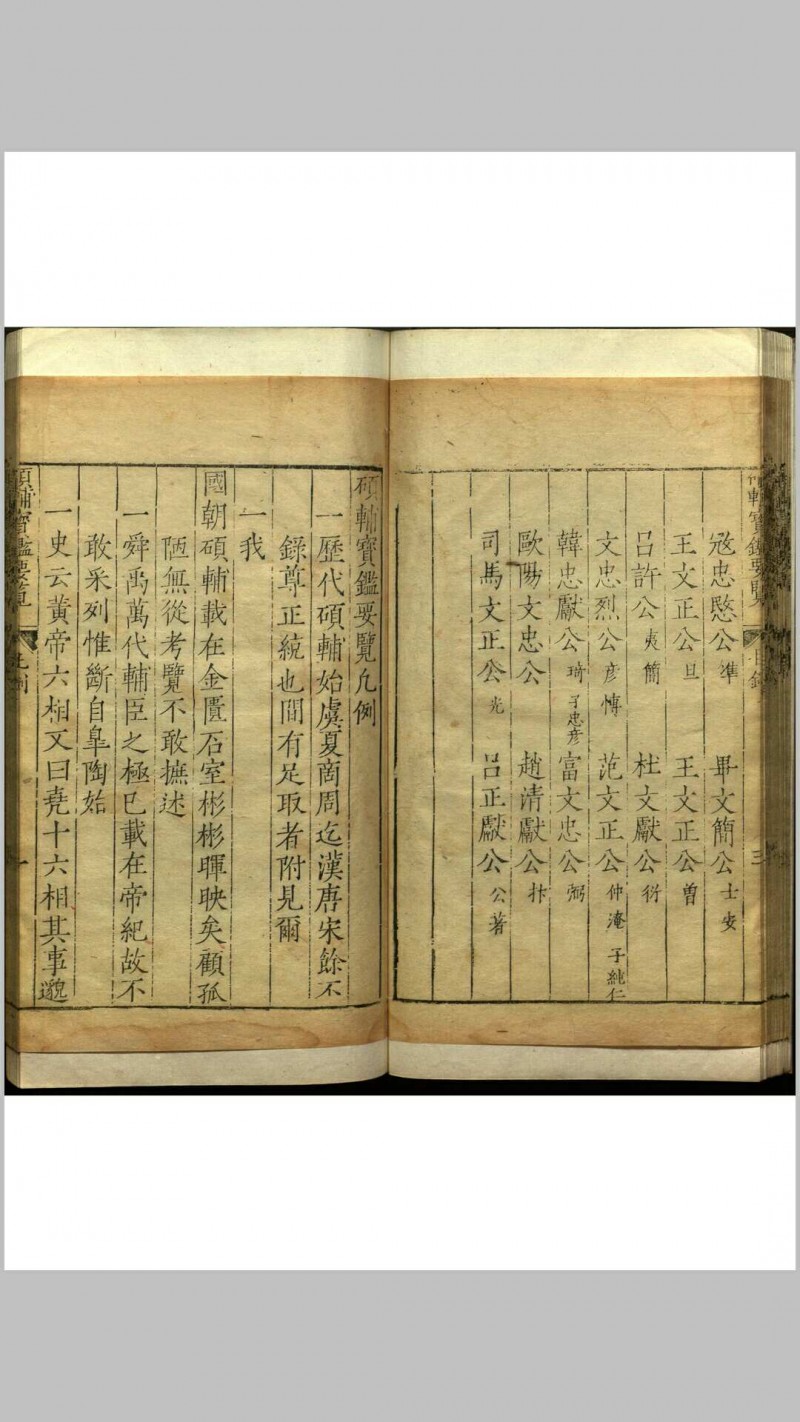 寇忠愍公 準 畢文簡公 士安
王文正公 旦 王文正公 曾
呂許公 夷簡 杜文獻公 衍
文忠烈公 彥博 范文正公 仲淹 子純仁
韓忠獻公 琦 子忠彦 富文忠公 弼
歐陽文忠公 趙清獻公 抃
司馬文正公 光 呂正獻公 公著
碩輔寶鑑要覽凡例
一歷代碩輔始虞夏商周迄漢唐宋餘不
錄尊正統也間有足取者附見爾
一我
國朝碩輔載在金匱石室彬彬暉映矣顧孤
陋無從考覽不敢摭述
一舜禹萬代輔臣之極已載在帝紀故不
敢采列惟斷自臯陶始
一史云黃帝六相又曰堯十六相其事邈